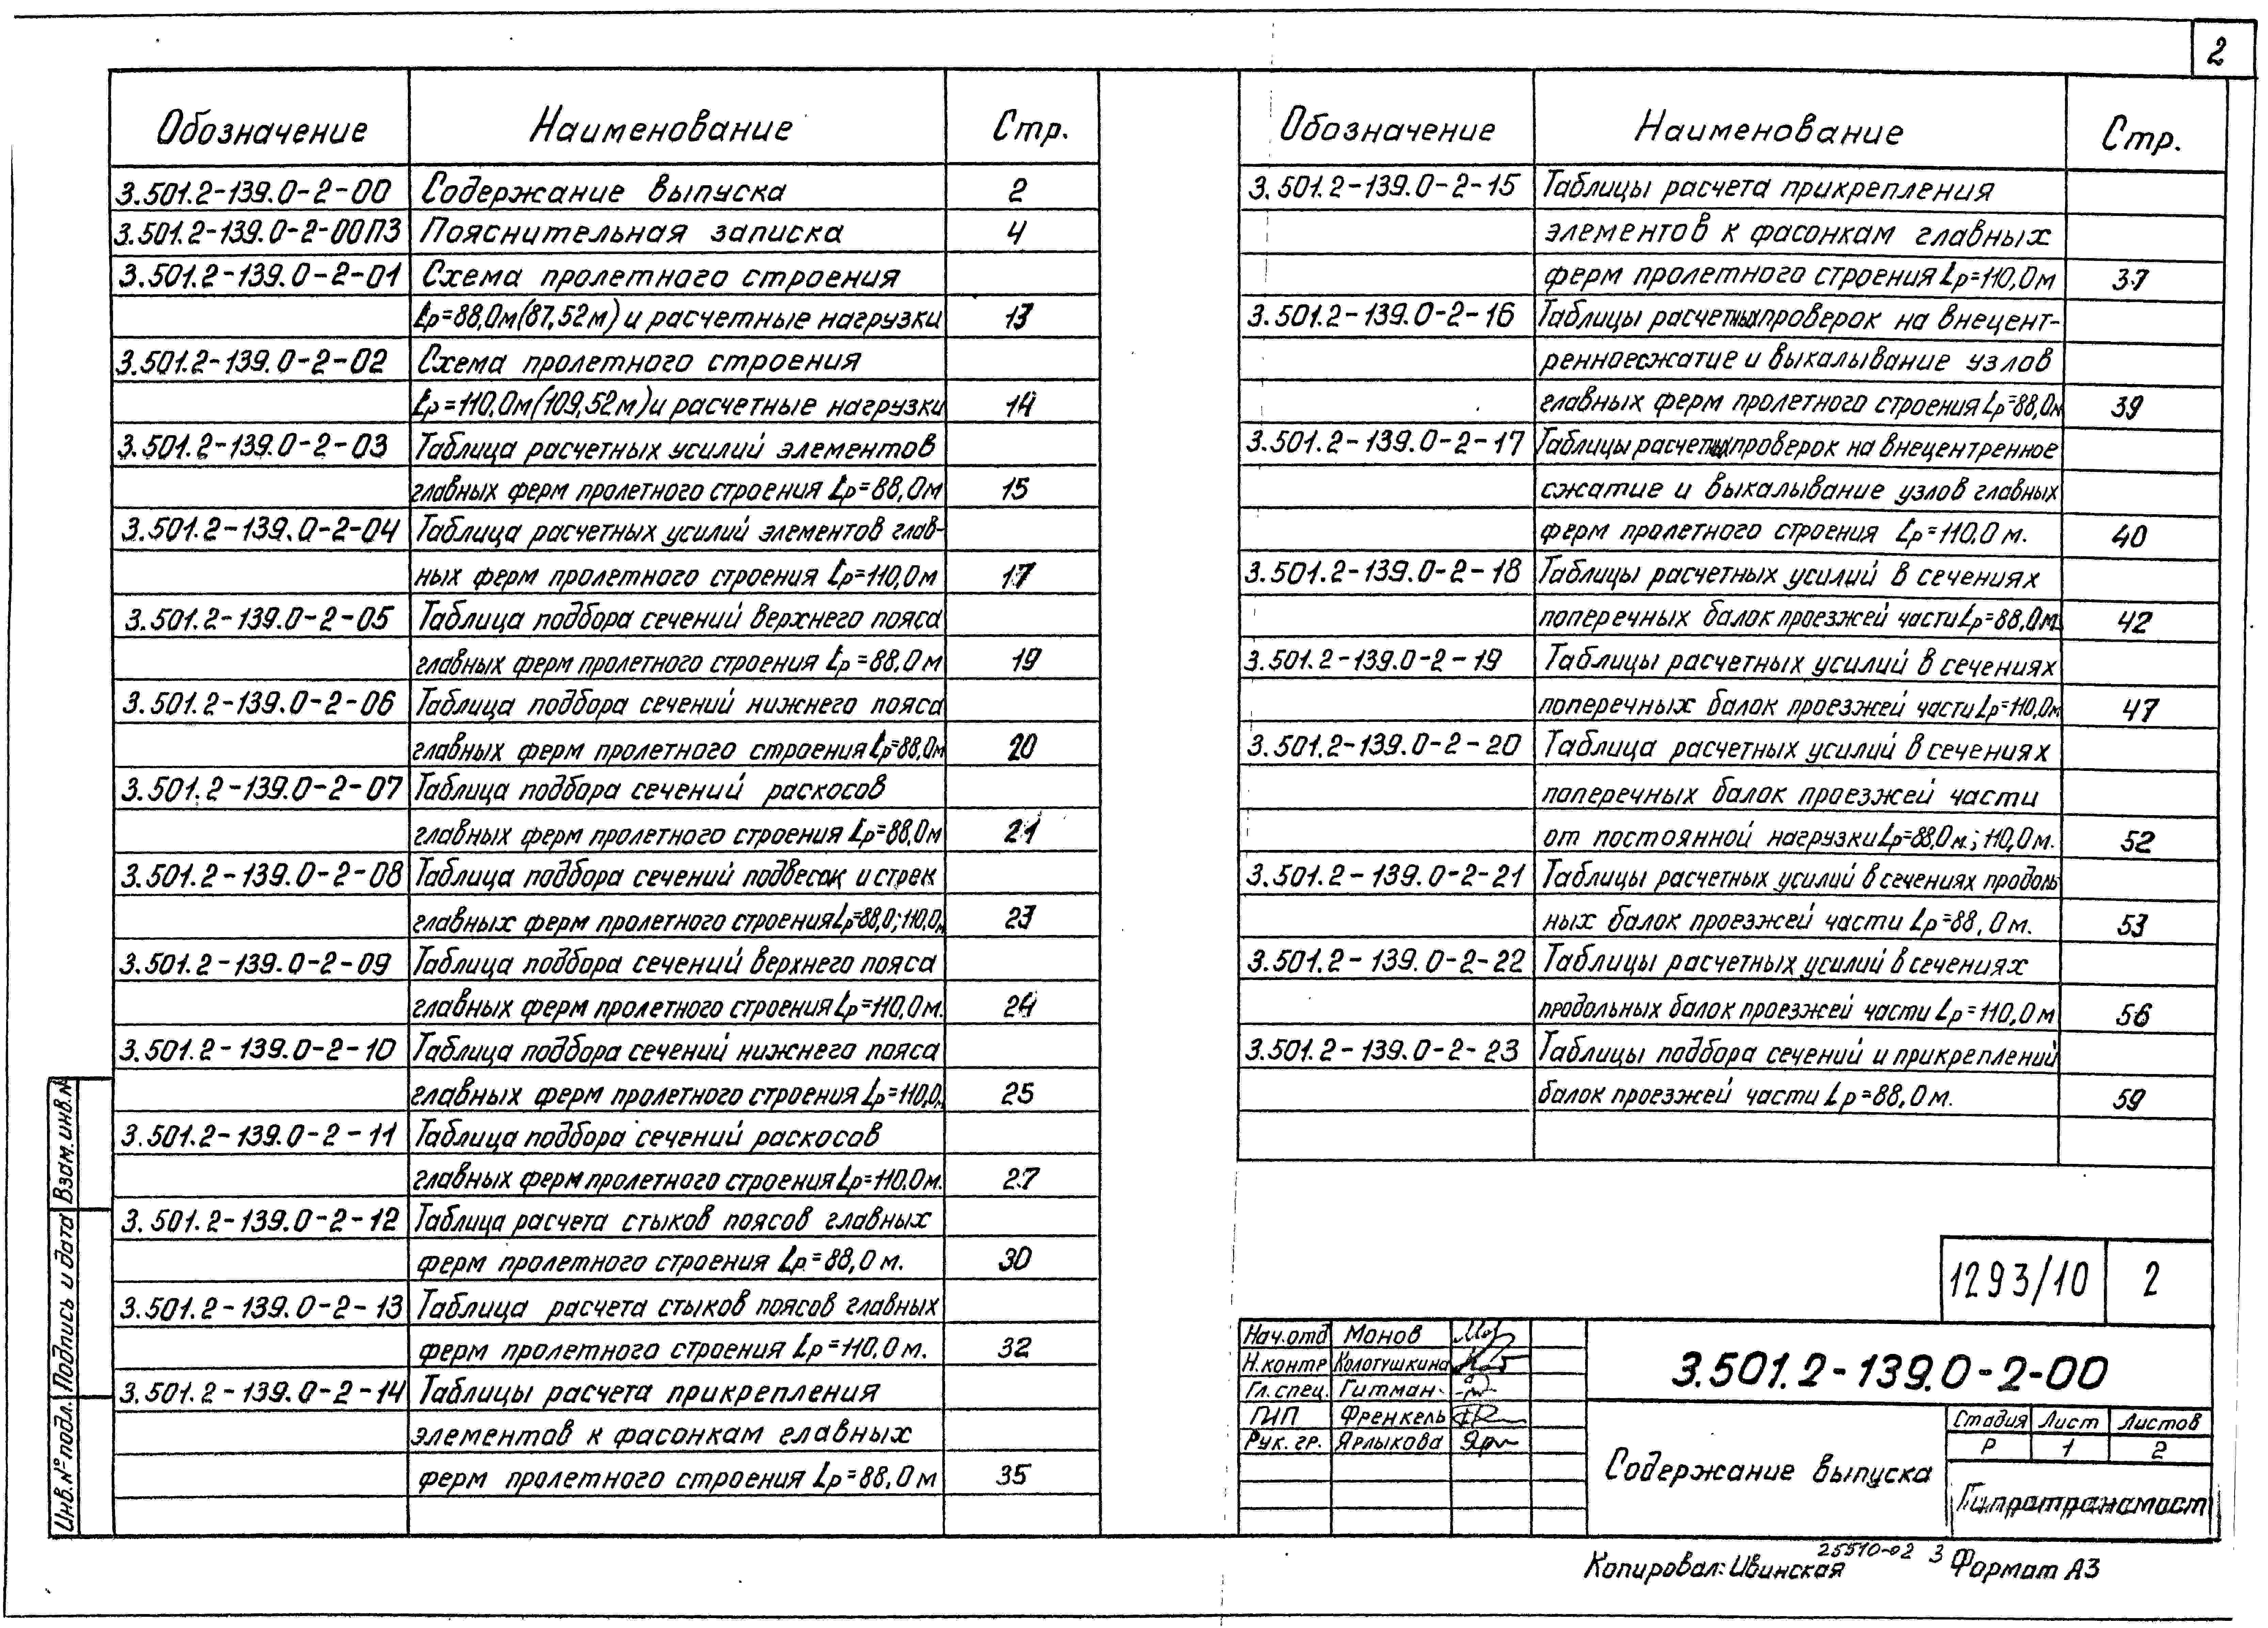 2
Обозначение Наименование Стр.
3.501.2-139.0-2-00 Содержание выпуска 2
3.501.2-139.0-2-00ПЗ Пояснительная записка 4
3.501.2-139.0-2-01 Схема пролетного строения
Lр=88,0м(87,52м) и расчетные нагрузки 13
3.501.2-139.0-2-02 Схема пролетного строения
Lр=110,0м(109,52м) и расчетные нагрузки 14
3.501.2-139.0-2-03 Таблица расчетных усилий элементов
главных ферм пролетного строения Lр=88,0м 15
3.501.2-139.0-2-04 Таблица расчетных усилий элементов глав-
ных ферм пролетного строения Lр=110,0м 17
3.501.2-139.0-2-05 Таблица подбора сечений верхнего пояса
главных ферм пролетного строения Lр=88.0м 19
3.501.2-139.0-2-06 Таблица подбора сечений нижнего пояса
главных ферм пролетного строения Lр=88,0м 20
3.501.2-139.0-2-07 Таблица подбора сечений раскосов
главных ферм пролетного строения Lр=88,0м 21
3.501.2-139.0-2-08 Таблица подбора сечений подвесок и стрек
главных ферм пролетного строения Lр=88,0;110,0м 23
3.501.2-139.0-2-09 Таблица подбора сечений верхнего пояса
главных ферм пролетного строения Lр=110,0м. 24
3.501.2-139.0-2-10 Таблица подбора сечений нижнего пояса
главных ферм пролетного строения Lр=110,0м 25
3.501.2-139.0-2-11 Таблица подбора сечений раскосов
главных ферм пролетного строения Lр=110.0м. 27
3.501.2-139.0-2-12 Таблица расчета стыков поясов главных
ферм пролетного строения Lр=88,0м. 30
3.501.2-139.0-2-13 Таблица расчета стыков поясов главных
ферм пролетного строения Lр=110,0м. 32
3.501.2-139.0-2-14 Таблицы расчета прикрепления
элементов к фасонкам главных
ферм пролетного строения Lр=88,0м 35
Обозначение Наименование Стр.
3.501.2-139.0-2-15 Таблицы расчета прикрепления
элементов к фасонкам главных
ферм пролетного строения Lр=110,0м 37
3.501.2-139.0-2-16 Таблицы расчетных проверок на внецент-
ренное сжатие и выкалывание узлов
главных ферм пролетного строения Lр=88,0м 39
3.501.2-139.0-2-17 Таблицы расчетных проверок на внецентренное
сжатие и выкалывание узлов главных
ферм пролетного строения Lр=110,0м. 40
3.501.2-139.0-2-18 Таблицы расчетных усилий в сечениях
поперечных балок проезжей части Lр=88,0м. 42
3.501.2-139.0-2-19 Таблицы расчетных усилий в сечениях
поперечных балок проезжей части Lр=110,0м 47
3.501.2-139.0-2-20 Таблица расчетных усилий в сечениях
поперечных балок проезжей части
от постоянной нагрузки Lр=88,0м.; 110,0м. 52
3.501.2-139.0-2-21 Таблицы расчетных усилий в сечениях продоль
ных балок проезжей части Lр=88,0м. 53
3.501.2-139.0-2-22 Таблицы расчетных усилий в сечениях
продольных балок проезжей части Lр=110,0м 56
3.501.2-139.0-2-23 Таблицы подбора сечений и прикреплений
балок проезжей части Lр=88,0м. 59
1293/10 2
Нач.отд Монов
Н.контр Колотушкина
Гл.спец. Гитман
ГИП Френкель
Рук.гр. Ярлыкова
3.501.2-139.0-2-00
Содержание выпуска
Стадия Лист Листов
Р 1 2
Гипротрансмост
Инв.№ подл. Подпись и дата Взам.инв.№
25510-02 3
Копировал: Ивинская Формат А3